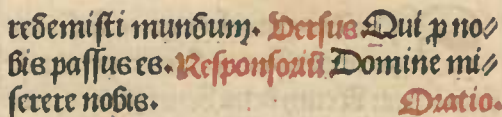 redemiſti mundum. Verſus Qui ꝓ no⸗
bis paſſus es. Reſponſoriũ Domine mi⸗
ſerere nobis. Oratio.